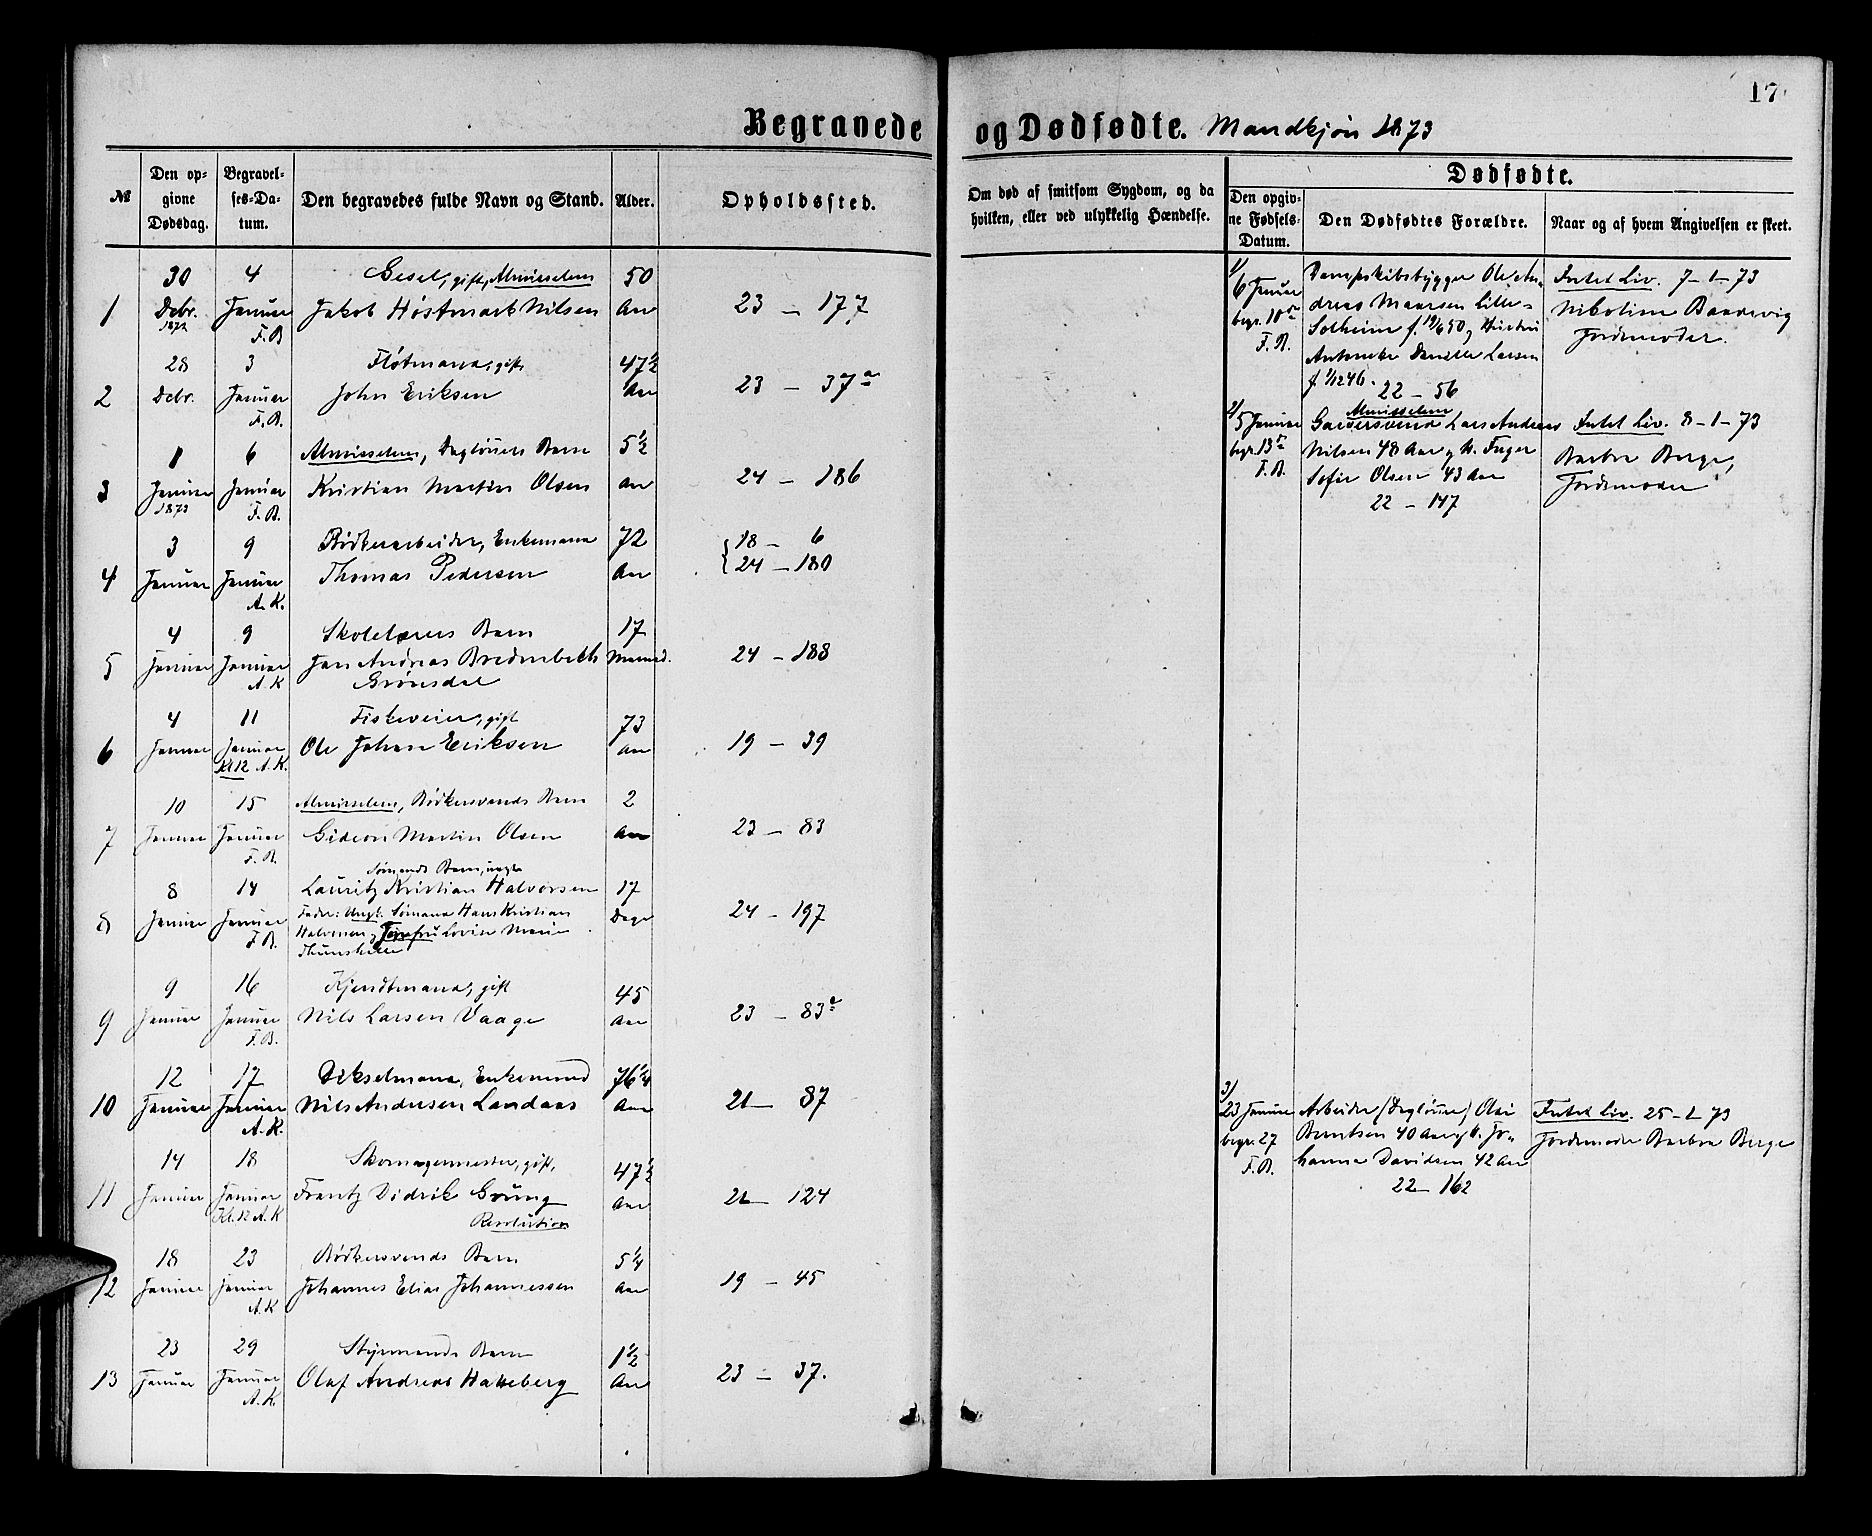 17
Begravede og Dødfødte. Mandkjøn 1873
№
Den opgivne Dødsdag.
Begravelses-Datum.
Den begravedes fulde Navn og Stand.
Alder.
Opholdssted.
Om død af smitsom Sygdom, og da hvilken, eller ved ulykkelig Hændelse.
Dødfødte.
Den opgivne Fødsels-Datum.
Den Dødfødtes Forældre.
Naar og af hvem Angivelsen er skeet.
30 4 Gesel, gift, Almisselem 50
1 Decbr. Januar Jakob Høstmark Nilsen Aar 23 - 177
1872 F.B
28 3 Fløtmand, gift 47½
2 Decbr. Januar John Eriksen Aar 23 - 37a
F.B.
1 6 Almisselem, Dagløners Barn 5½
3 Januar Januar Kristian Martin Olsen Aar 24 - 186
1873 F.B.
3 9 Bødkerarbeider, Enkemand 72 18 - 6
4 Januar Januar Thomas Pedersen Aar 24 - 180
A.K.
4 9 Skolelærers Barn 17
5 Januar Januar Jan Andreas Bredenbekk Maaned. 24 - 188
A.K Grønsdal
4 11 Fiskeveier, gift 73
6 Januar Januar Ole Johan Eriksen Aar 19 - 39
Kl 12 A.K.
10 15 Almisselem, Bødkersvends Barn 2
7 Januar Januar Gideon Martin Olsen Aar 23 - 83
F.B.
Sømands Barn, uægte
8 14 Lauritz Kristian Halvorsen 17
8 Januar Januar Fader: Ungk. Sømand Hans Kristian Dage 24 - 197
F.B. Halvorsen og Jomfru Lovise Marie
9 16 Kjendtmand, gift 45
9 Januar Januar Nils Larsen Vaage Aar 23 - 83a
F.B.
12 17 Dikselmand, Enkemand 76¼
10 Januar Januar Nils Andersen Landaas Aar 21 - 87
A.K.
14 18 Skomagermester, gift, 47½
11 Januar Januar Frantz Didrik Grung Aar 21 - 124
Kl. 12 A.K Resolution
18 23 Bødkersvends Barn 5¼
12 Januar Januar Johannes Elias Johannessen Aar 19 - 45
A.K
23 29 Styrmands Barn 1½
13 Januar Januar Olaf Andreas Hatteberg Aar 23 - 37.
A.K.
1/ Dampskibsbygger Ole An- Intet Liv. 7-1-73
6 Januar dreas Maarsen Lille- Nikoline Baadsvig
begr. 10de Solheim f. 19/6 50 og Hustru Jordemoder.
F.B. Antonette Danielle Larsen
f. 1/12 46. 22 - 56
Almisselem
2/5 Januar Garversvend Lars Andreas Intet Liv. 8-1-73
begr. 13de Nilsen 48 Aar og H. Inger Barbra Berge,
F.B. Sofie Olsen 43 Aar Jordemoder
22 - 147
3/
23 Januar Arbeider (Dagløner) Olai Intet Liv. 25-1-73
begr. 27 Berntsen 40 Aar og H. Jo- Jordemoder Barbra Berge
F.B. hanna Davidsen 42 Aar
22 - 162